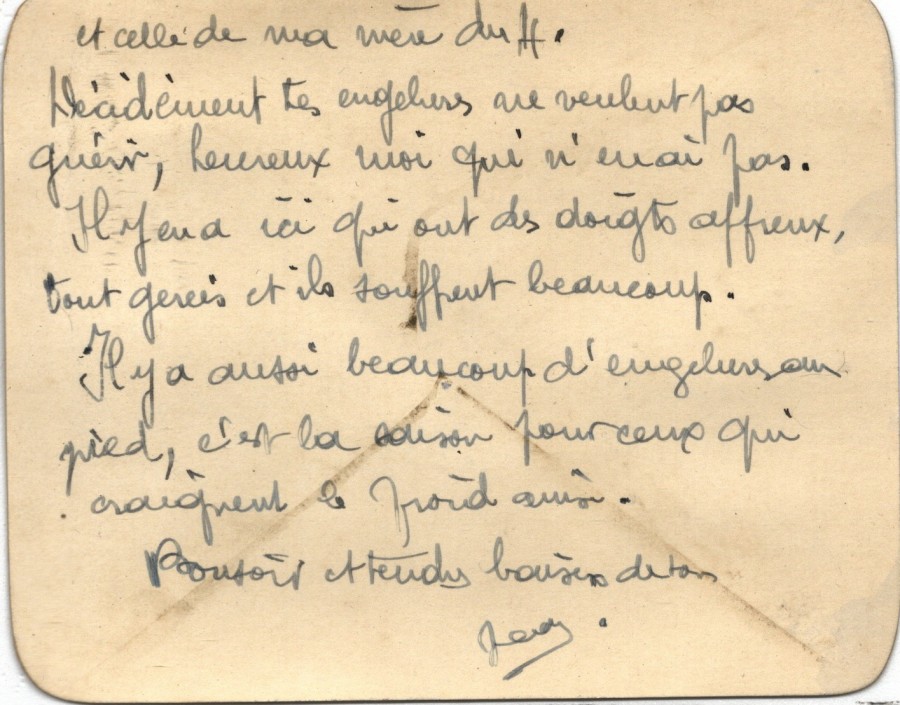 et celle de ma mère du 4.
Décidément tes engelures ne veulent pas
guérir, heureux moi qui n'en ai pas.
Il y en a ici qui ont des doigts affreux,
tout gercés et ils souffrent beaucoup.
Il y a aussi beaucoup d'engelures au
pied, c'est la saison pour ceux qui
craignent le froid aussi.
Bonsoir et tendres baisers de ton